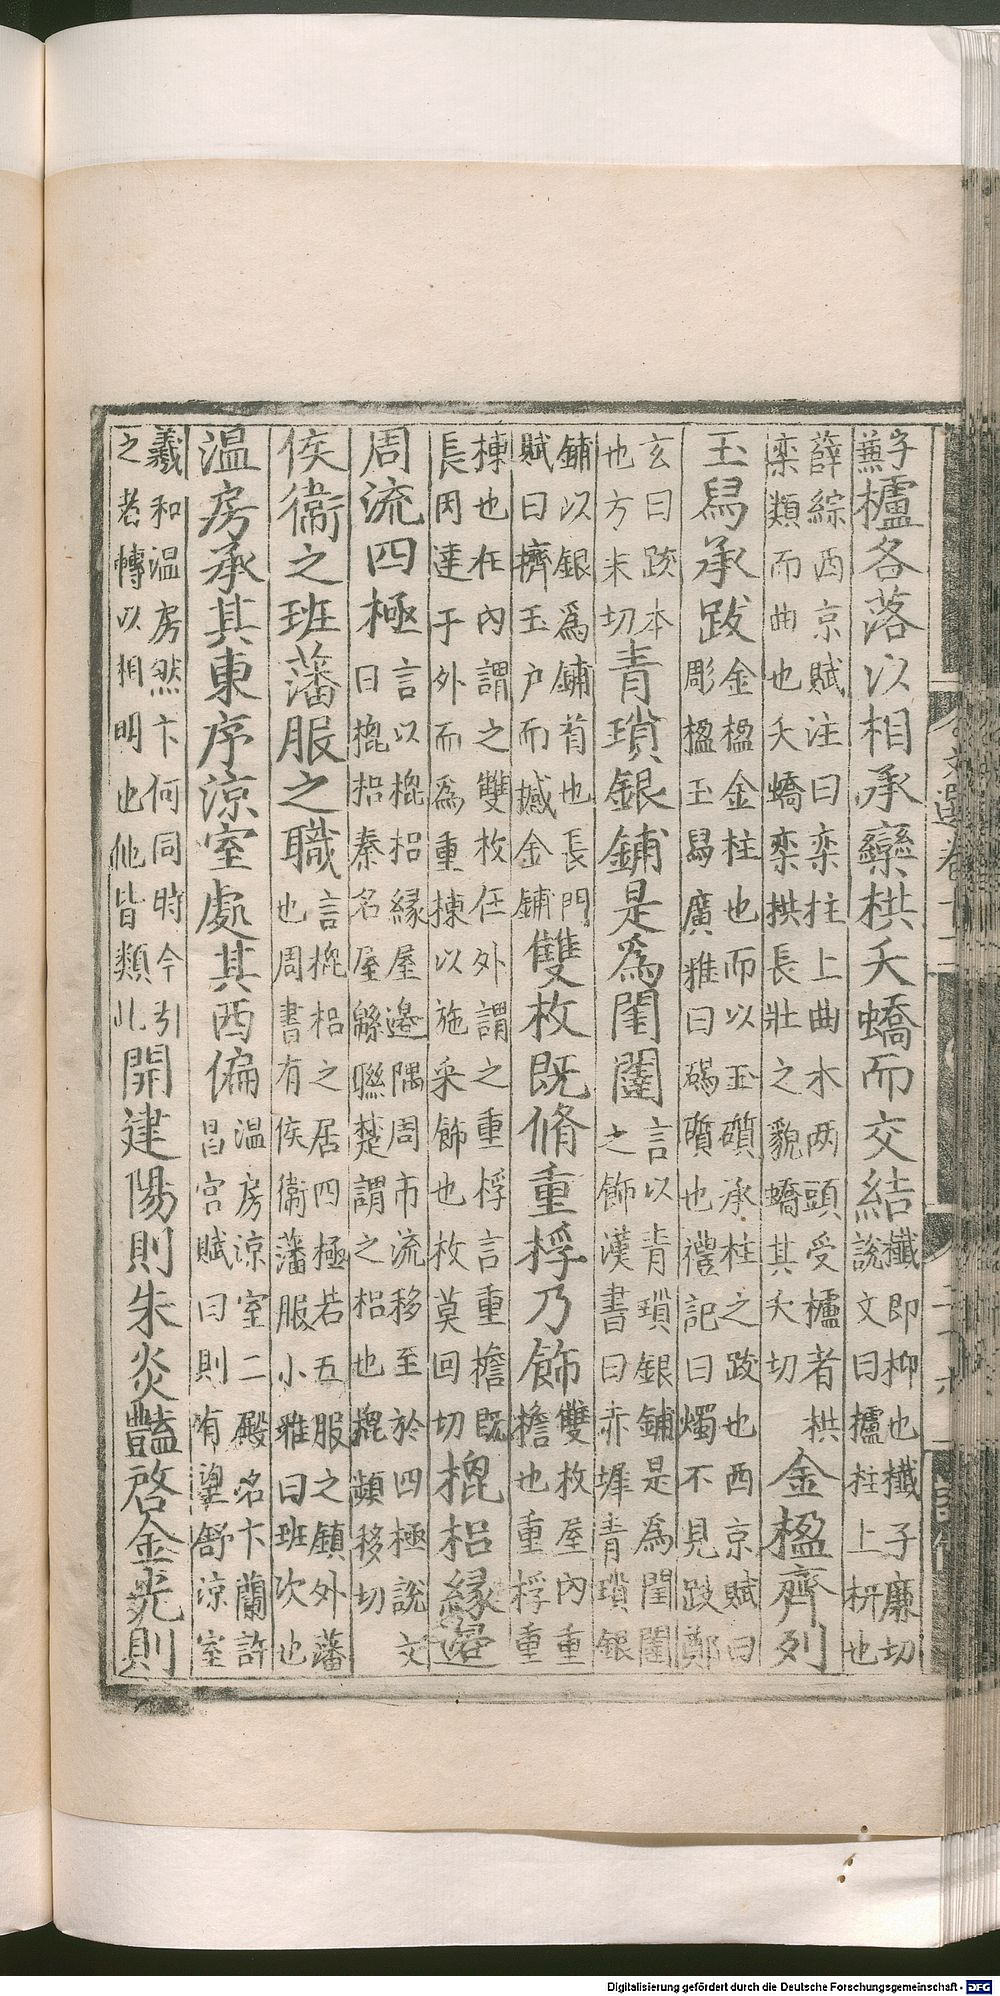 字櫨各落以相承欒栱夭蟜而交結櫼即枊也櫼子廉切
蕪說文曰櫨柱上枅也
薛綜西京賦注曰栾柱上曲木两頭受櫨者栱
栾類而曲也夭蟜栾拱長壯之貌蟜其夭切金楹齊列
玉舄承跋金楹金柱也而以玉礩承柱之跋也西京賦曰
彫楹玉舄廣雅曰碣礩也禮記曰燭不見跋鄭
玄曰跋本
也方末切青瑣銀鋪是爲閨闥言以青瑣銀鋪是為閨闥
之飾漢書曰赤墀青瑣銀
鋪以銀爲鋪首也長門
賦曰擠玉户而撼金鋪雙枚既脩重桴乃飾雙枚屋內重
檐也重桴重
棟也在內謂之雙枚在外謂之重桴言重檐既
長因達于外而為重棟以施采飾也枚莫回切槐梠緣邊
周流四極言以槐梠緣屋邊隅周市流移至於四極說文
曰槐梠秦名屋緜聯楚謂之梠也槐頻移切
侯衞之班藩服之職言槐梠之居四極若五服之鎮外藩
也周書有侯衞藩服小雅曰班次也
温房承其東序凉室處其西偏温房凉室二殿名卞蘭許
昌宮賦曰則有望舒凉室
羲和温房然卞何同時今引
之者轉以相明也他皆類此開建陽則朱炎豔啓金光則
Digitalisierung gefördert durch die Deutsche Forschungsgemeinschaft - DFG